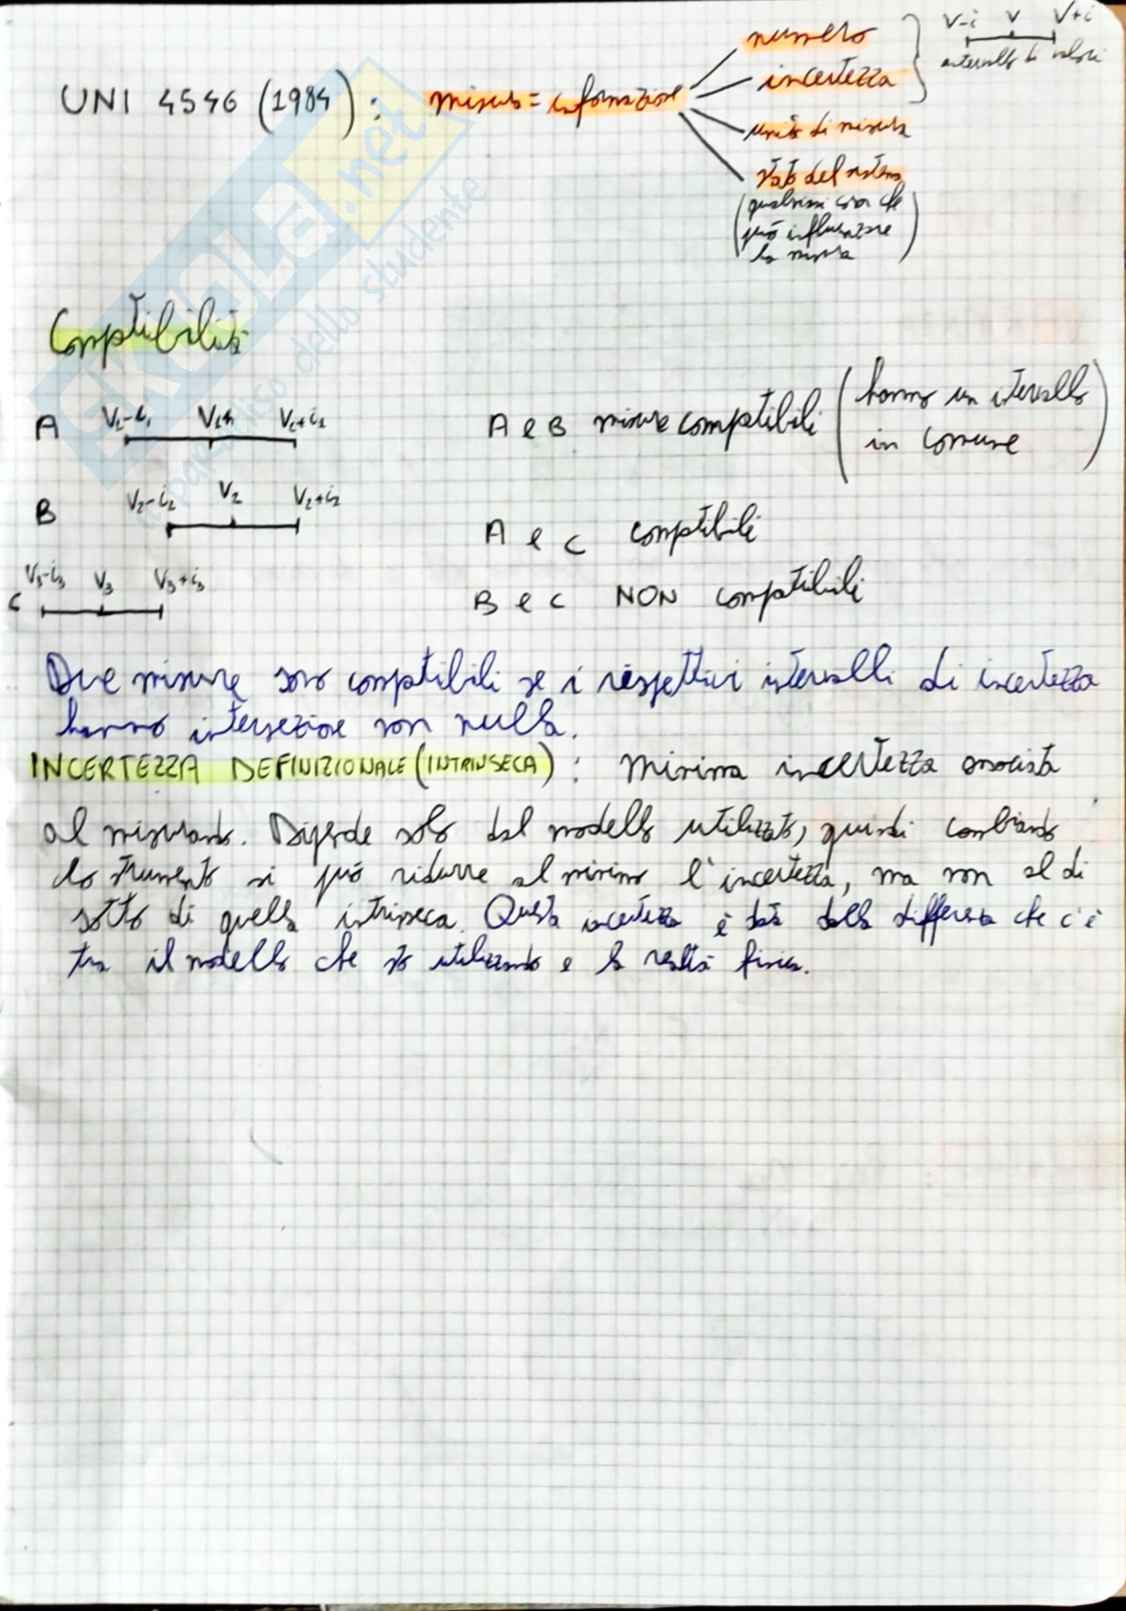 UNI 4546 (1984): misura = informazione
numero
incertezza
unità di misura
stato del sistema
(qualsiasi cosa che
può influenzare
la misura)
V-i V V+i
intervallo di valori
Compatibilità
A V1-i1 V1+i1
B V2-i2 V2 V2+i2
C V3-i3 V3 V3+i3
A e B misure compatibili (hanno un itervallo
in comune)
A e C compatibili
B e C NON compatibili
Due misure sono compatibili se i rispettivi intervalli di incertezza
hanno intersezione non nulla.
INCERTEZZA DEFINIZIONALE (INTRINSECA): minima incertezza associata
al misurando. Dipende solo dal modello utilizzato, quindi cambiando
lo strumento si può ridurre al minimo l'incertezza, ma non al di
sotto di quella intrinseca. Questa incertezza è data dalla differenza che c'è
tra il modello che sto utilizzando e la realtà fisica.
SKUOLA.net
paradiso dello studente